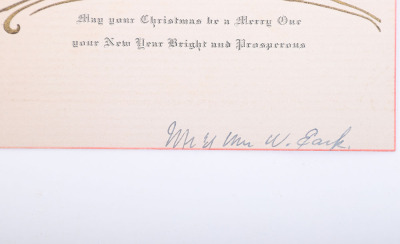 May your Christmas be a Merry One
your New Year Bright and Prosperous
Mr & Mrs W.